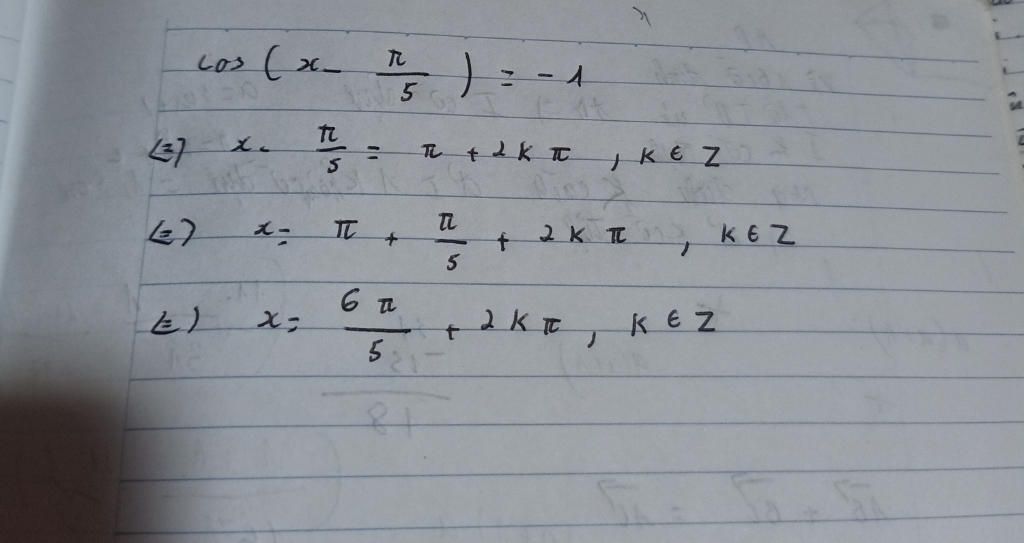 cos ( x - π/5 ) = - 1
<=> x - π/5 = π + 2kπ , k ∈ Z
<=> x = π + π/5 + 2kπ , k ∈ Z
<=> x = 6π/5 + 2kπ , k ∈ Z